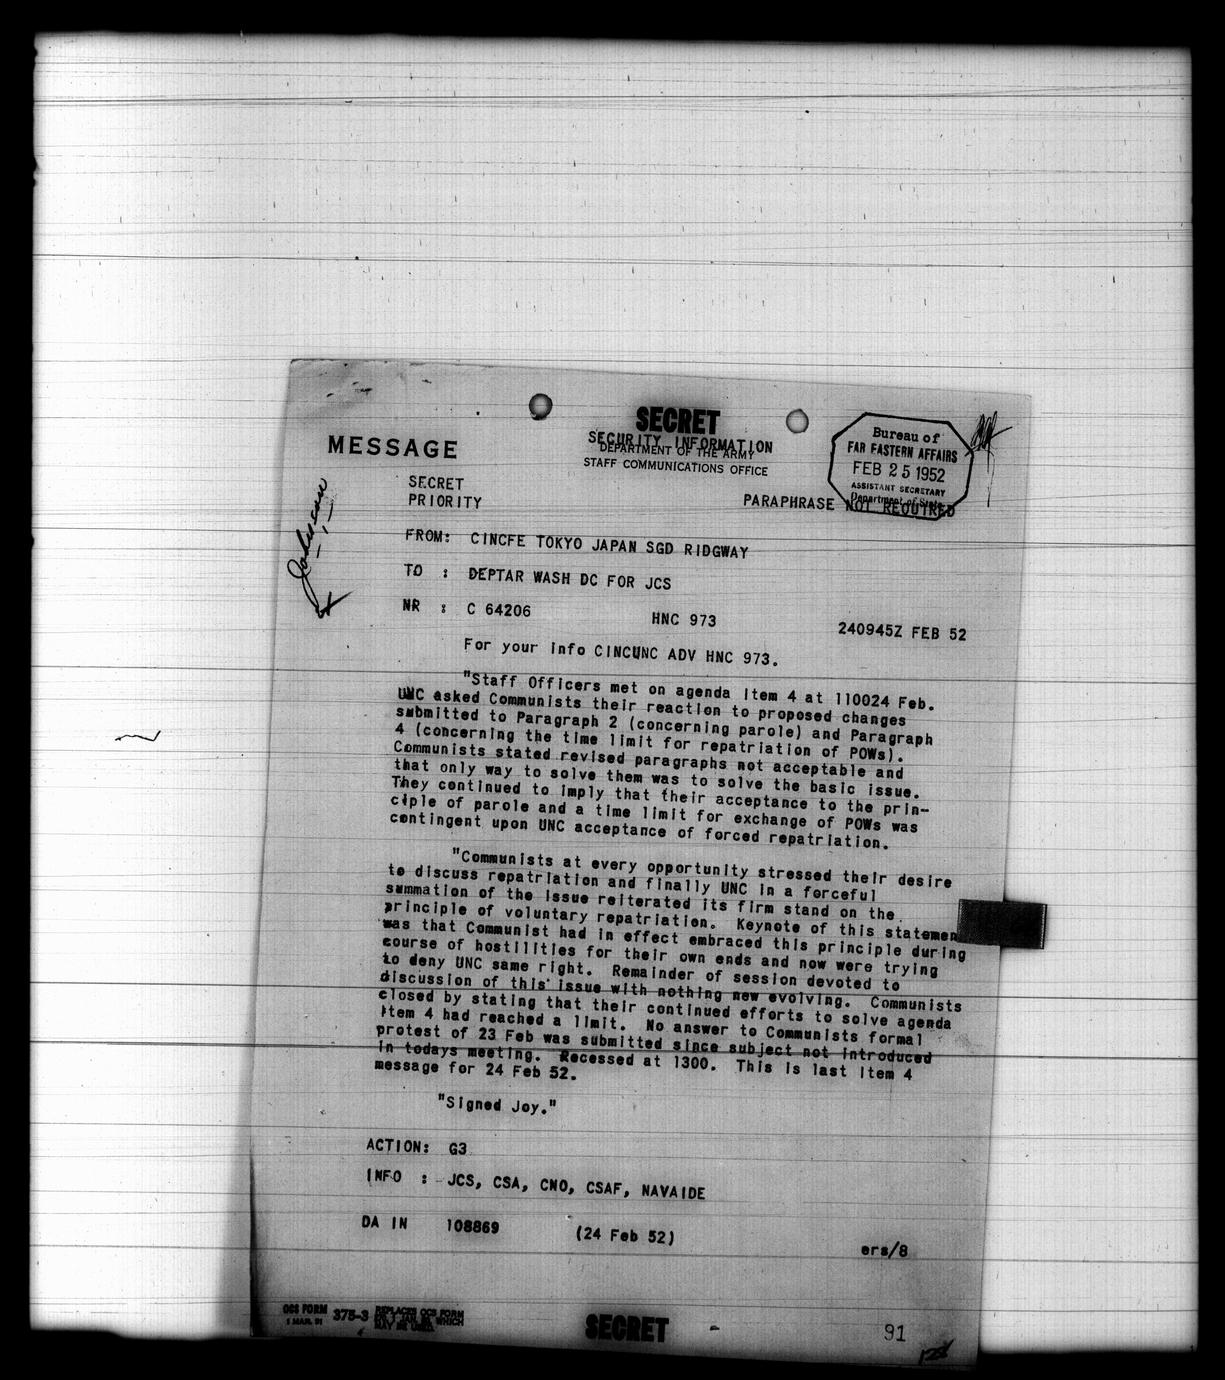 SECRET
SECURITY INFORMATION
DEPARTMENT OF THE ARMY
STAFF COMMUNICATIONS OFFICE
MESSAGE
Bureau of
FAR EASTERN AFFAIRS
FEB 25 1952
ASSISTANT SECRETARY
Department of State
SECRET
PRIORITY
PARAPHRASE NOT REQUIRED
Johnson
FROM: CINCFE TOKYO JAPAN SGD RIDGWAY
TO : DEPTAR WASH DC FOR JCS
NR : C 64206 HNC 973 240945Z FEB 52
For your info CINCUNC ADV HNC 973.
"Staff Officers met on agenda item 4 at 110024 Feb.
UNC asked Communists their reaction to proposed changes
submitted to Paragraph 2 (concerning parole) and Paragraph
4 (concerning the time limit for repatriation of POWs).
Communists stated revised paragraphs not acceptable and
that only way to solve them was to solve the basic issue.
They continued to imply that their acceptance to the prin-
ciple of parole and a time limit for exchange of POWs was
contingent upon UNC acceptance of forced repatriation.
"Communists at every opportunity stressed their desire
to discuss repatriation and finally UNC in a forceful
summation of the issue reiterated its firm stand on the
principle of voluntary repatriation. Keynote of this statemen
was that Communist had in effect embraced this principle during
course of hostilities for their own ends and now were trying
to deny UNC same right. Remainder of session devoted to
discussion of this issue with nothing new evolving. Communists
closed by stating that their continued efforts to solve agenda
item 4 had reached a limit. No answer to Communists formal
protest of 23 Feb was submitted since subject not introduced
in todays meeting. Recessed at 1300. This is last item 4
message for 24 Feb 52.
"Signed Joy."
ACTION: G3
INFO : JCS, CSA, CNO, CSAF, NAVAIDE
DA IN 108869 (24 Feb 52)
ers/8
OCS FORM 375-3 REPLACES OCS FORM
1 MAR. 51
WHICH
MAY BE USED.
SECRET
91